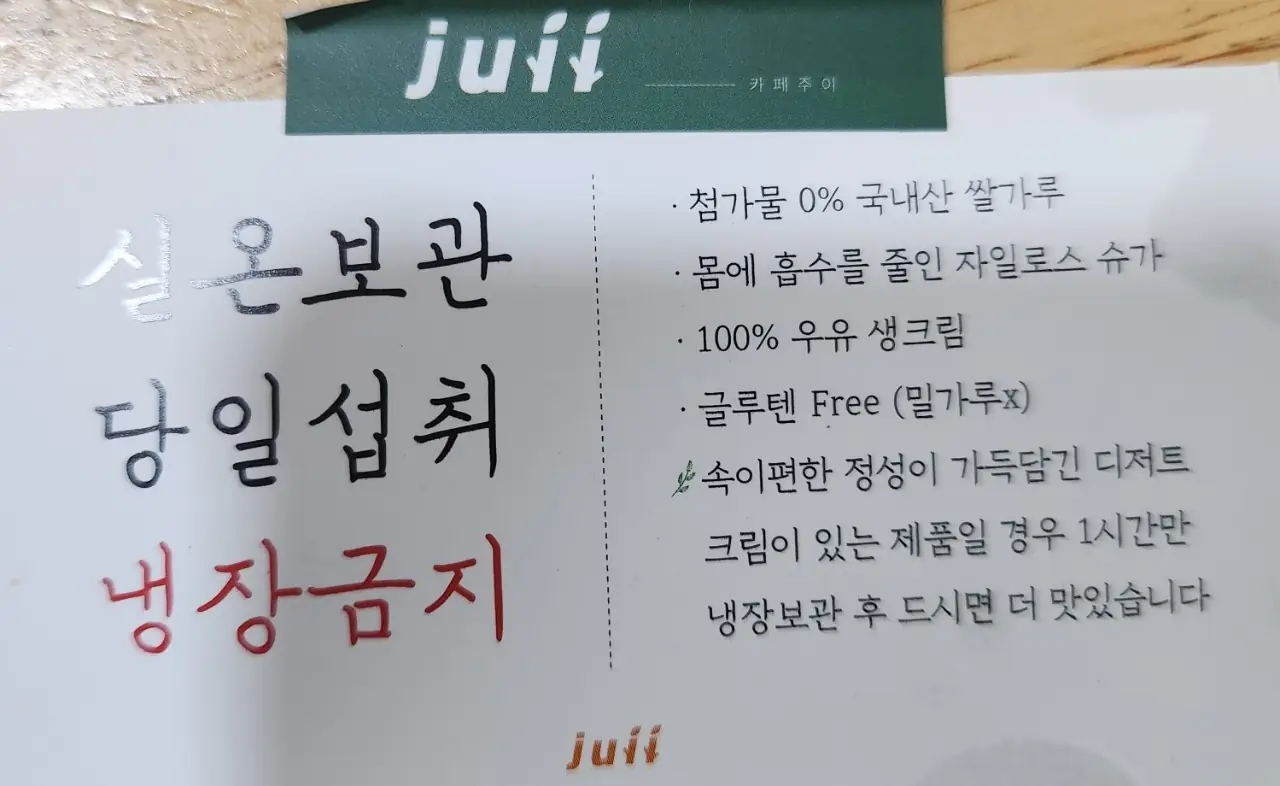 juii 카페주이
실온보관
당일섭취
냉장금지
· 첨가물 0% 국내산 쌀가루
· 몸에 흡수를 줄인 자일로스 슈가
· 100% 우유 생크림
· 글루텐 Free (밀가루x)
속이편한 정성이 가득담긴 디저트
크림이 있는 제품일 경우 1시간만
냉장보관 후 드시면 더 맛있습니다
juii